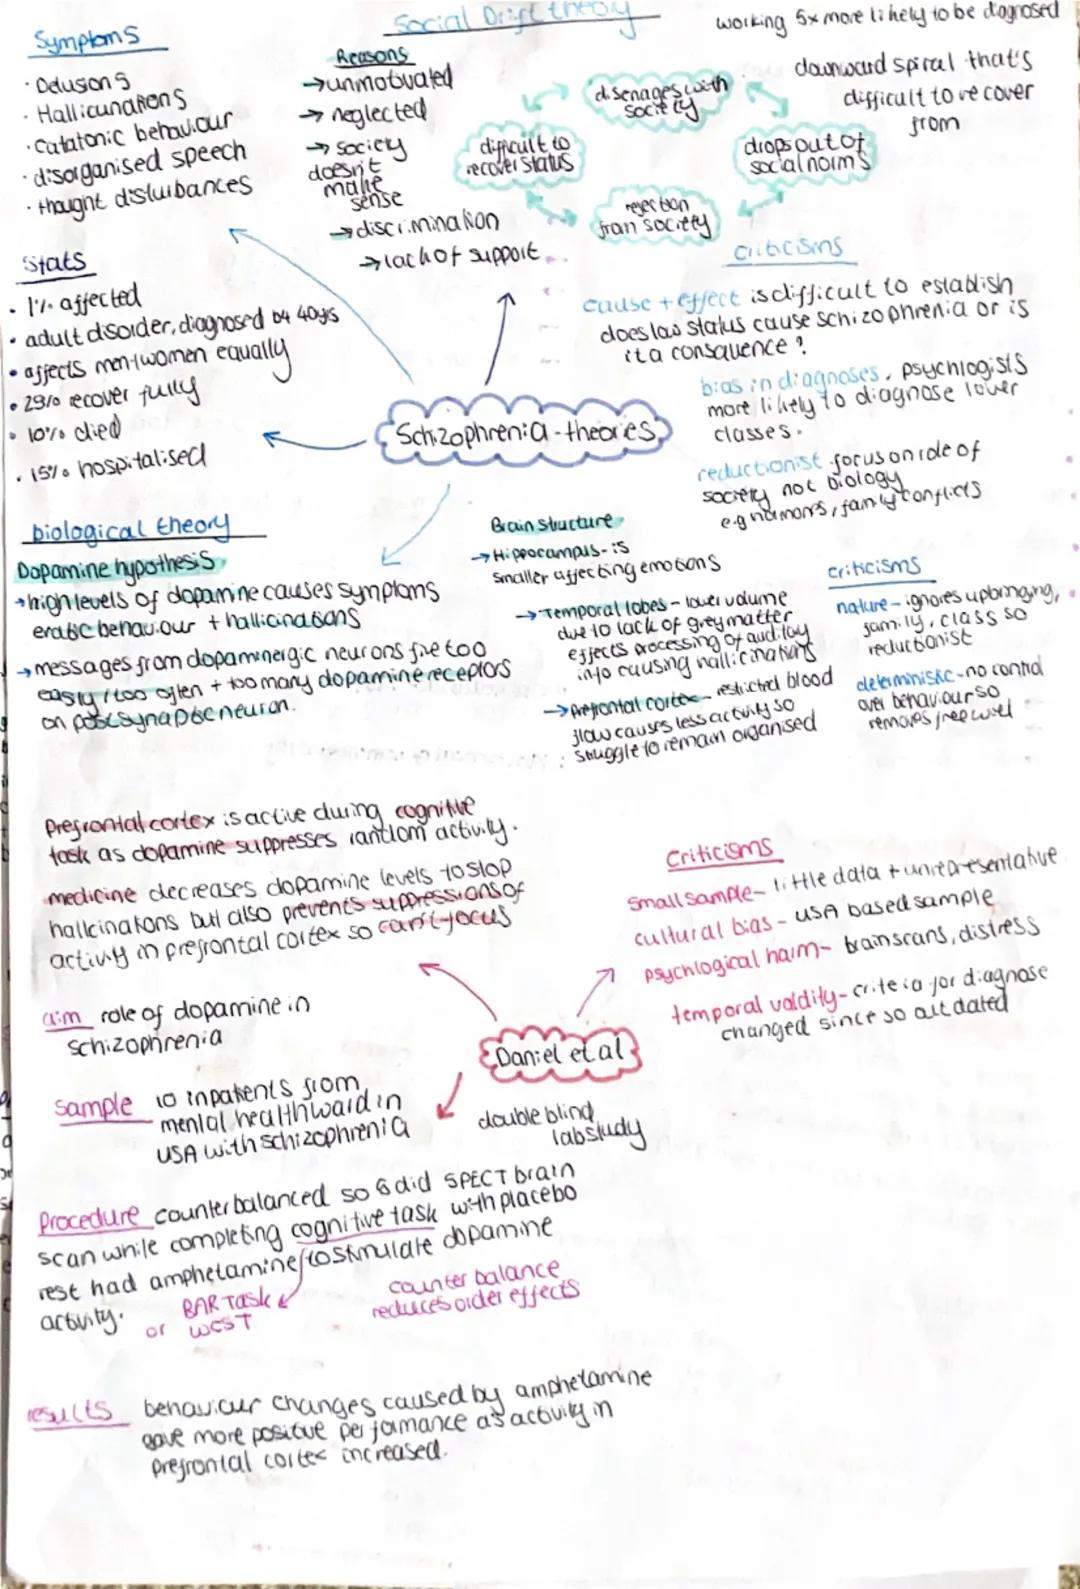 Symptoms
· Delusions
· Hallicunations
· Catatonic behaviour
· disorganised speech
· thought disturbances
Social Drift theory
Reasons
→unmotivated
→ neglected
→ society
doesn't
make
sense
→discrimination
→ lack of support
disenages with
society
drops out of
social norms
rejection
from society
difficult to
recover status
working 5x more likely to be diagnosed
downward spiral that's
difficult to recover
from
criticisms
cause + effect is difficult to establish
does low status cause schizophrenia or is
it a consquence?
bias in diagnoses, psychlogists
more likely to diagnose lower
classes.
reductionist focus on role of
society not biology
e.g hormons, family conflicts
Stats
· 1% affected
· adult disorder, diagnosed by 40yrs
· affects men+women equally
· 25% recover fully
· 10% died
· 15% hospitalised
Schizophrenia - theories
biological theory
Dopamine hypothesis
→high levels of dopamine causes symptoms
eratic behaviour + hallicinations
→messages from dopaminergic neurons fire too
easily / too often + too many dopamine receptors
on postsynaptic neuron.
Brain structure
→Hippocampus- is
smaller affecting emotions
→Temporal lobes - lower volume
due to lack of grey matter
effects processing of auditoy
info causing hallicinations
→Prefrontal cortex - restricted blood
flow causes less activity so
struggle to remain organised
criticisms
nature - ignores upbringing,
family, class so
reductionist
deterministic - no control
over behaviour so
removes free will
Prefrontal cortex is active during cognitive
task as dopamine suppresses random activity.
medicine decreases dopamine levels to stop
hallcinations but also prevents suppressions of
activity in prefrontal cortex so can't focus
Criticisms
small sample- little data + unrepresentative
cultural bias - USA based sample
psychlogical harm- brainscans, distress
temporal valdity- criteia for diagnose
changed since so out dated
Daniel et al
double blind
lab study
aim role of dopamine in
schizophrenia
sample 10 inpatients from
mental health ward in
USA with schizophrenia
Procedure counterbalanced so 6 did SPECT brain
scan while completing cognitive task with placebo
rest had amphetamine to stimulate dopamine
activity.
BAR Task
or WCST
counter balance
reduces order effects
results behaviour changes caused by amphetamine
gave more positive performance as activity in
prefrontal cortex increased.